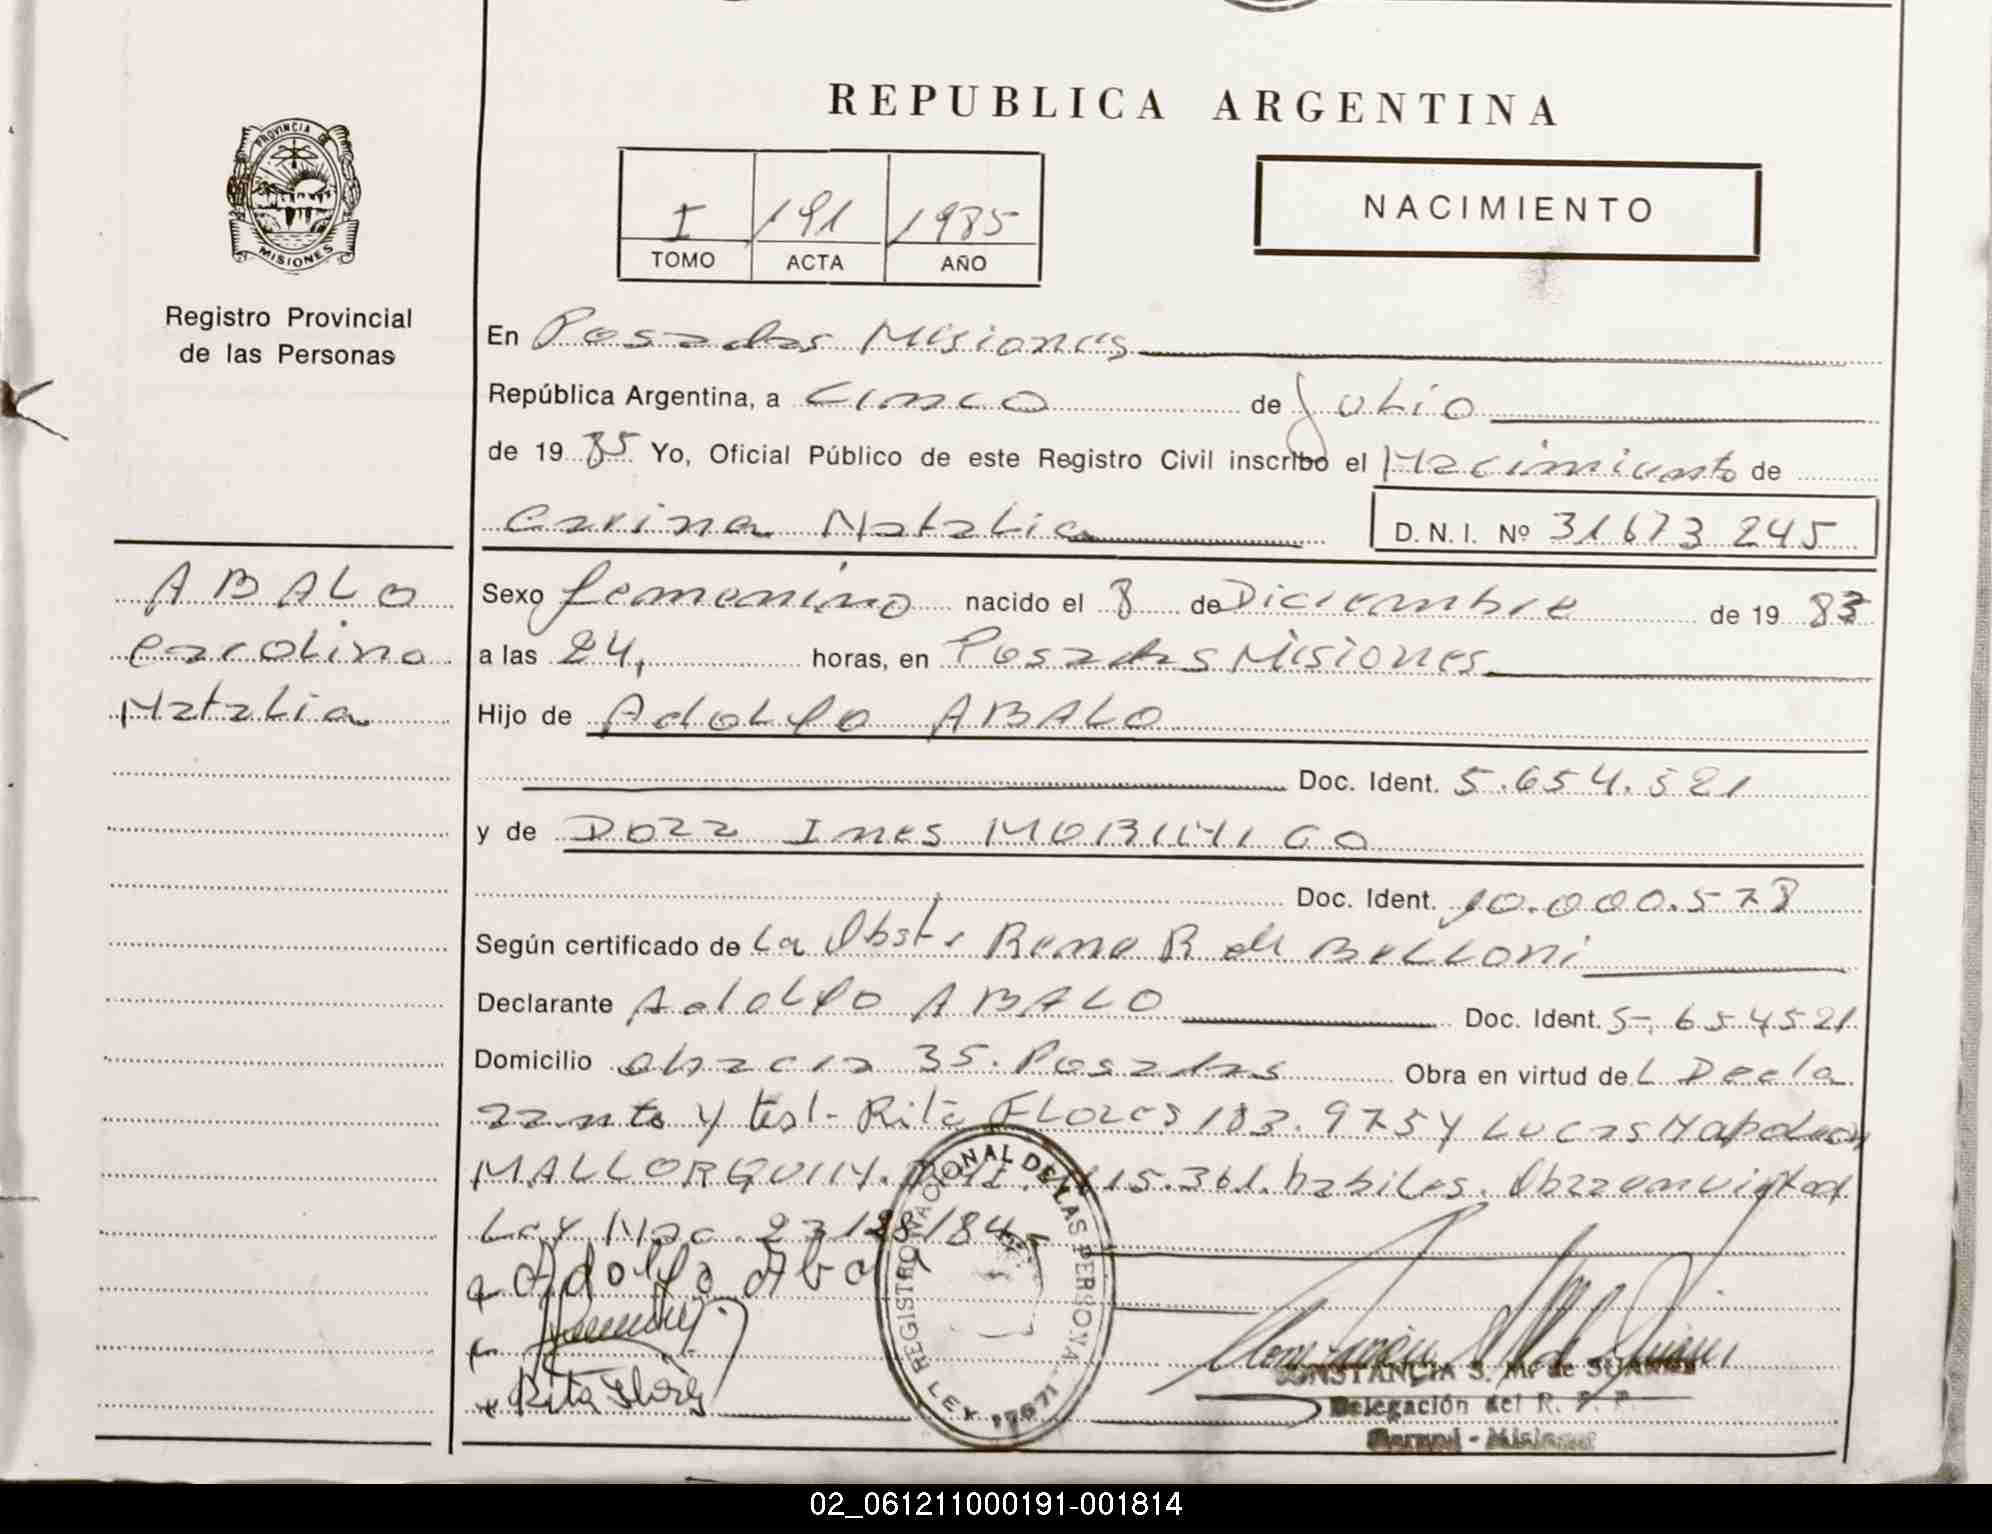 REPUBLICA ARGENTINA
PROVINCIA DE
MISIONES
Registro Provincial
de las Personas
I 191 1985
TOMO ACTA AÑO
NACIMIENTO
En Posadas Misiones
República Argentina, a cinco de julio
de 19 85 Yo, Oficial Público de este Registro Civil inscribo el Nacimiento de
Carina Natalia D. N. I. Nº 31673 245
ABALO
carolina
Natalia
Sexo femenino nacido el 8 de Diciembre de 19 83
a las 24, horas, en Posadas Misiones
Hijo de Adolfo ABALO
Doc. Ident. 5.654.521
y de Dora Ines MORINIGO
Doc. Ident. 10.000.578
Según certificado de La Obst. Rene R de Belloni
Declarante Adolfo ABALO Doc. Ident. 5.654521
Domicilio 35. Posadas Obra en virtud del Decla
rante y test- Rita FLORES 183.975 y Lucas Napoleon
MALLORQUIN. 15.361. habiles. Obra en virtud
Ley Nac. 23128/84
Adolfo Abalo
Rita Flores
REGISTRO NACIONAL DE LAS PERSONA
LEY 17671
CONSTANCIA S. M. de
Delegación del R. P. P.
- Misiones
02_061211000191-001814